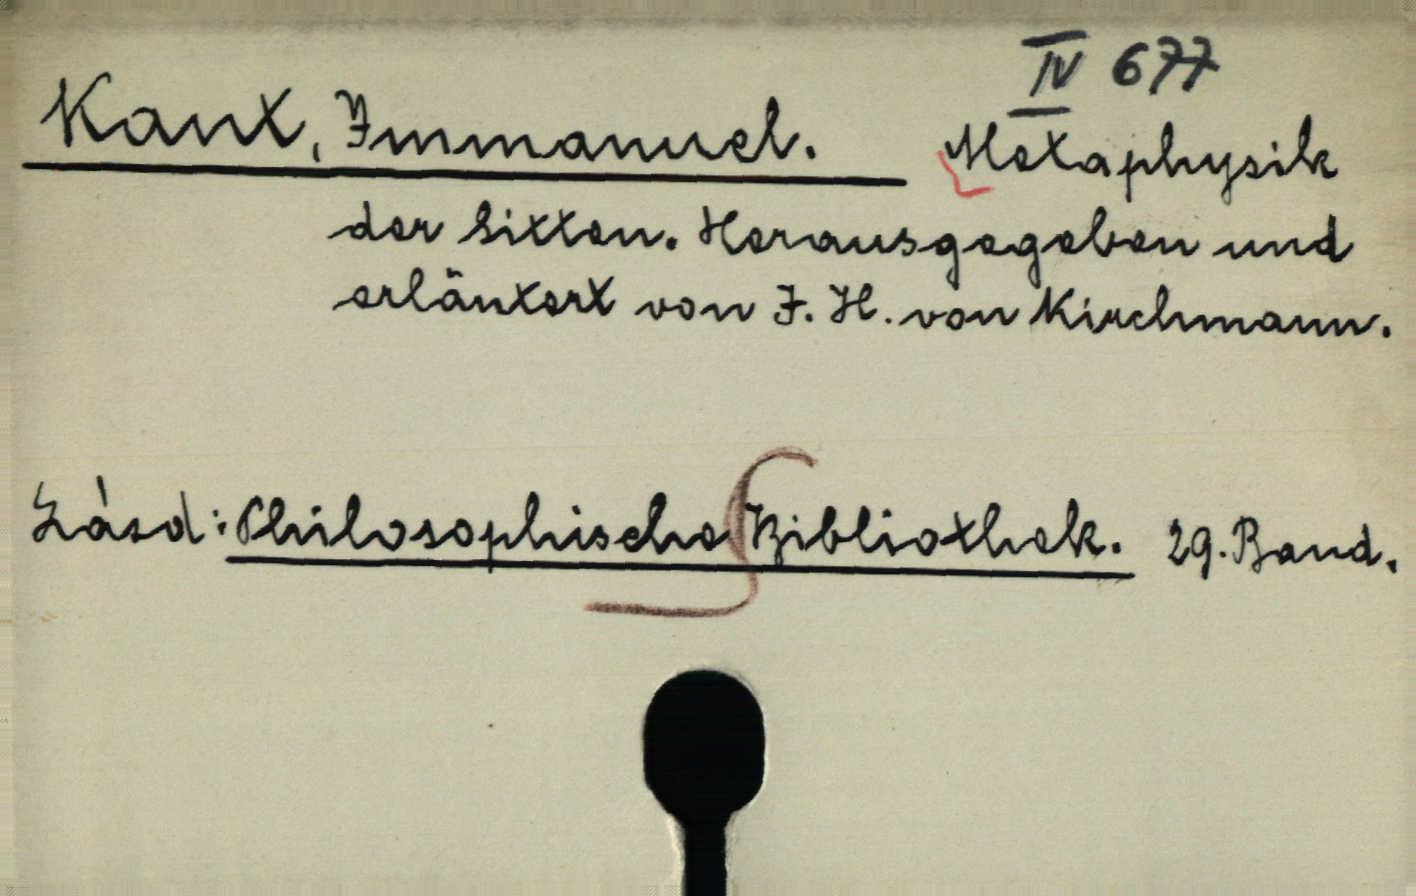 IV 677
Kant, Immanuel. Metaphysik
der Sitten. Herausgegeben und
erläutert von J. H. von Kirchmann.
Lásd: Philosophische Bibliothek. 29. Band.